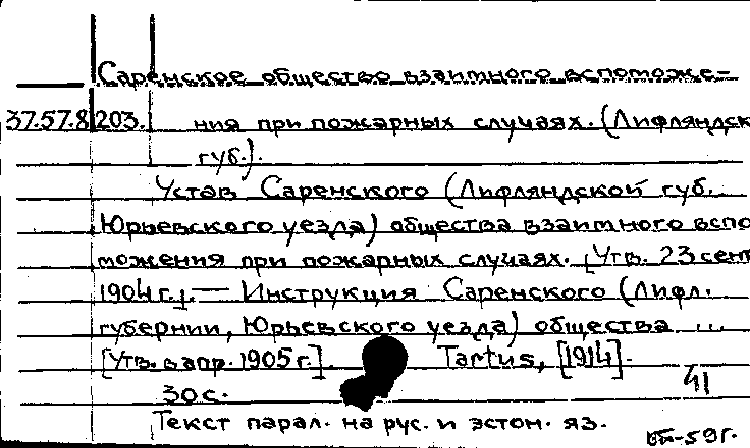 Саренское общество взаимного вспоможе-
37.57.8 203. ния при пожарных случаях. (Лифляндск
губ.).
Устав Саренского (Лифляндской губ.
Юрьевского уезда) общества взаимного вспо
можения при пожарных случаях. [Утв. 23 сент
1904 г.]. — Инструкция Саренского (Лифл.
губернии, Юрьевского уезда) общества ...
[Утв. 8 апр. 1905 г.]. Tartus, [1914].
41
30 с.
Текст парал. на рус. и эстон. яз.